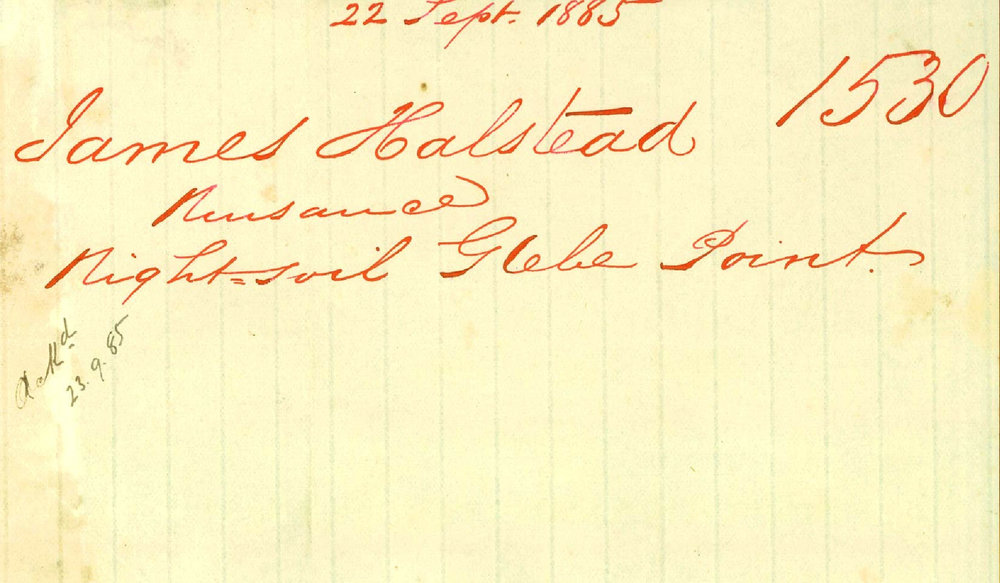 22 Sept. 1885
1530
James Halstead
Nuisance
Night=soil Glebe Point.
Ackd
23.9.85